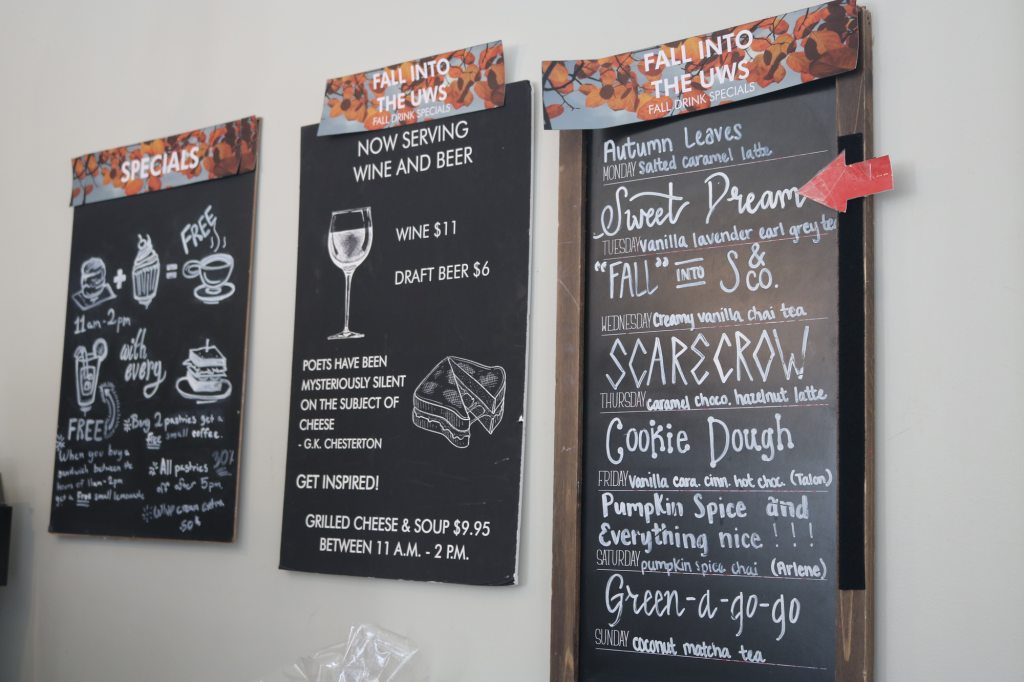 SPECIALS
FREE
+ =
11am-2pm
with
every
FREE
Buy 2 pastries get a
free small coffee.
When you buy a
sandwich between the
hours of 11am-2pm
get a free small lemonade
All pastries 30%
off after 5pm.
Whip cream extra
50¢
FALL INTO
THE UWS
FALL DRINK SPECIALS
NOW SERVING
WINE AND BEER
WINE $11
DRAFT BEER $6
POETS HAVE BEEN
MYSTERIOUSLY SILENT
ON THE SUBJECT OF
CHEESE
- G.K. CHESTERTON
GET INSPIRED!
GRILLED CHEESE & SOUP $9.95
BETWEEN 11 A.M. - 2 P.M.
FALL INTO
THE UWS
FALL DRINK SPECIALS
Autumn Leaves
MONDAY Salted caramel latte
Sweet Dream
TUESDAY vanilla lavender earl grey tea
"FALL" INTO S & CO.
WEDNESDAY Creamy vanilla chai tea
SCARECROW
THURSDAY caramel choco. hazelnut latte
Cookie Dough
FRIDAY Vanilla cara. cinn. hot choc. (Talon)
Pumpkin Spice and
Everything nice ! ! !
SATURDAY pumpkin spice chai (Arlene)
Green-a-go-go
SUNDAY coconut matcha tea